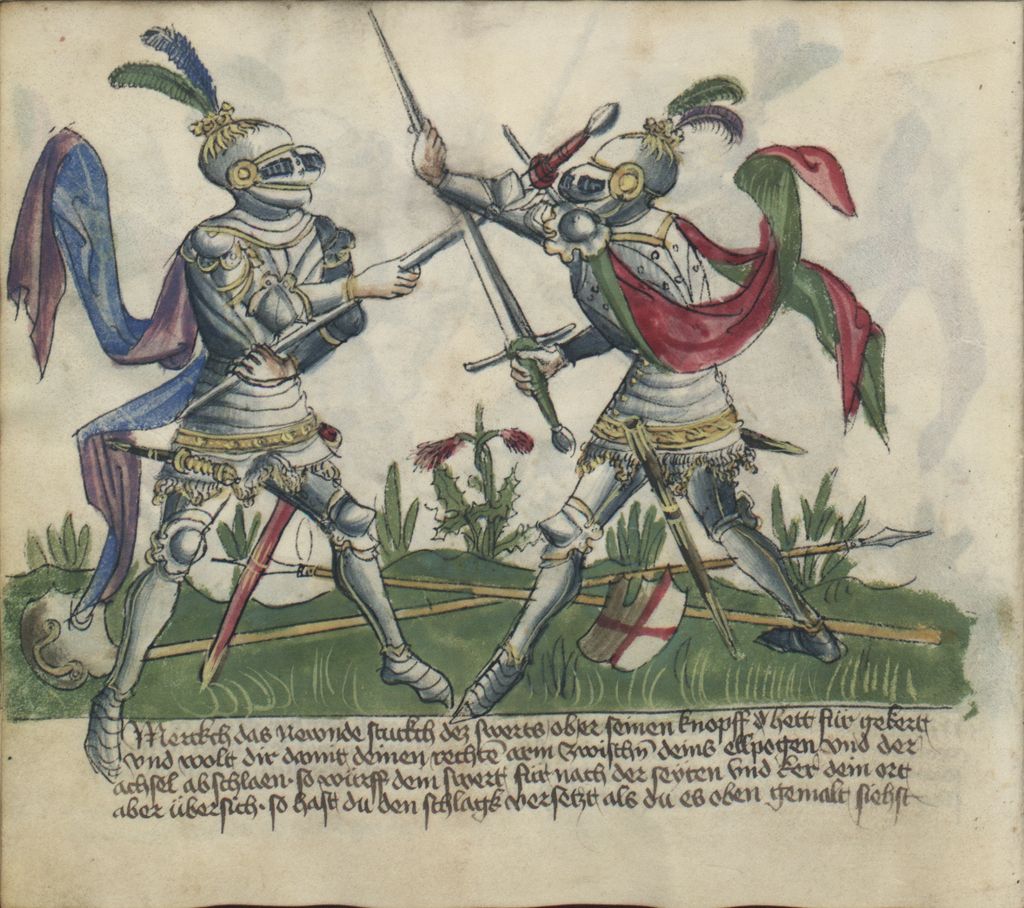 Merckch das Newnde stuckch dez swerts ober seinen knopff d hett für gekert
vnd wolt dir damit deinen rechten arm Zwischn deins ellpogen vnd der
achsel abschlaen · so würff dem swert für nach der seyten vnd ker dem ort
aber übersich · so hast du den schlagk versetzt als du es oben gemalt siehst